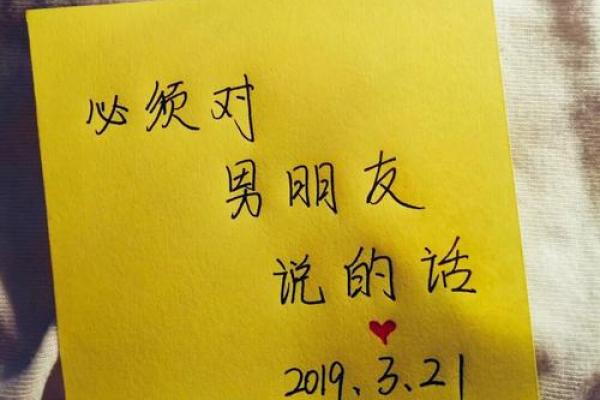 必须对
男朋友
说的话
2019.3.21